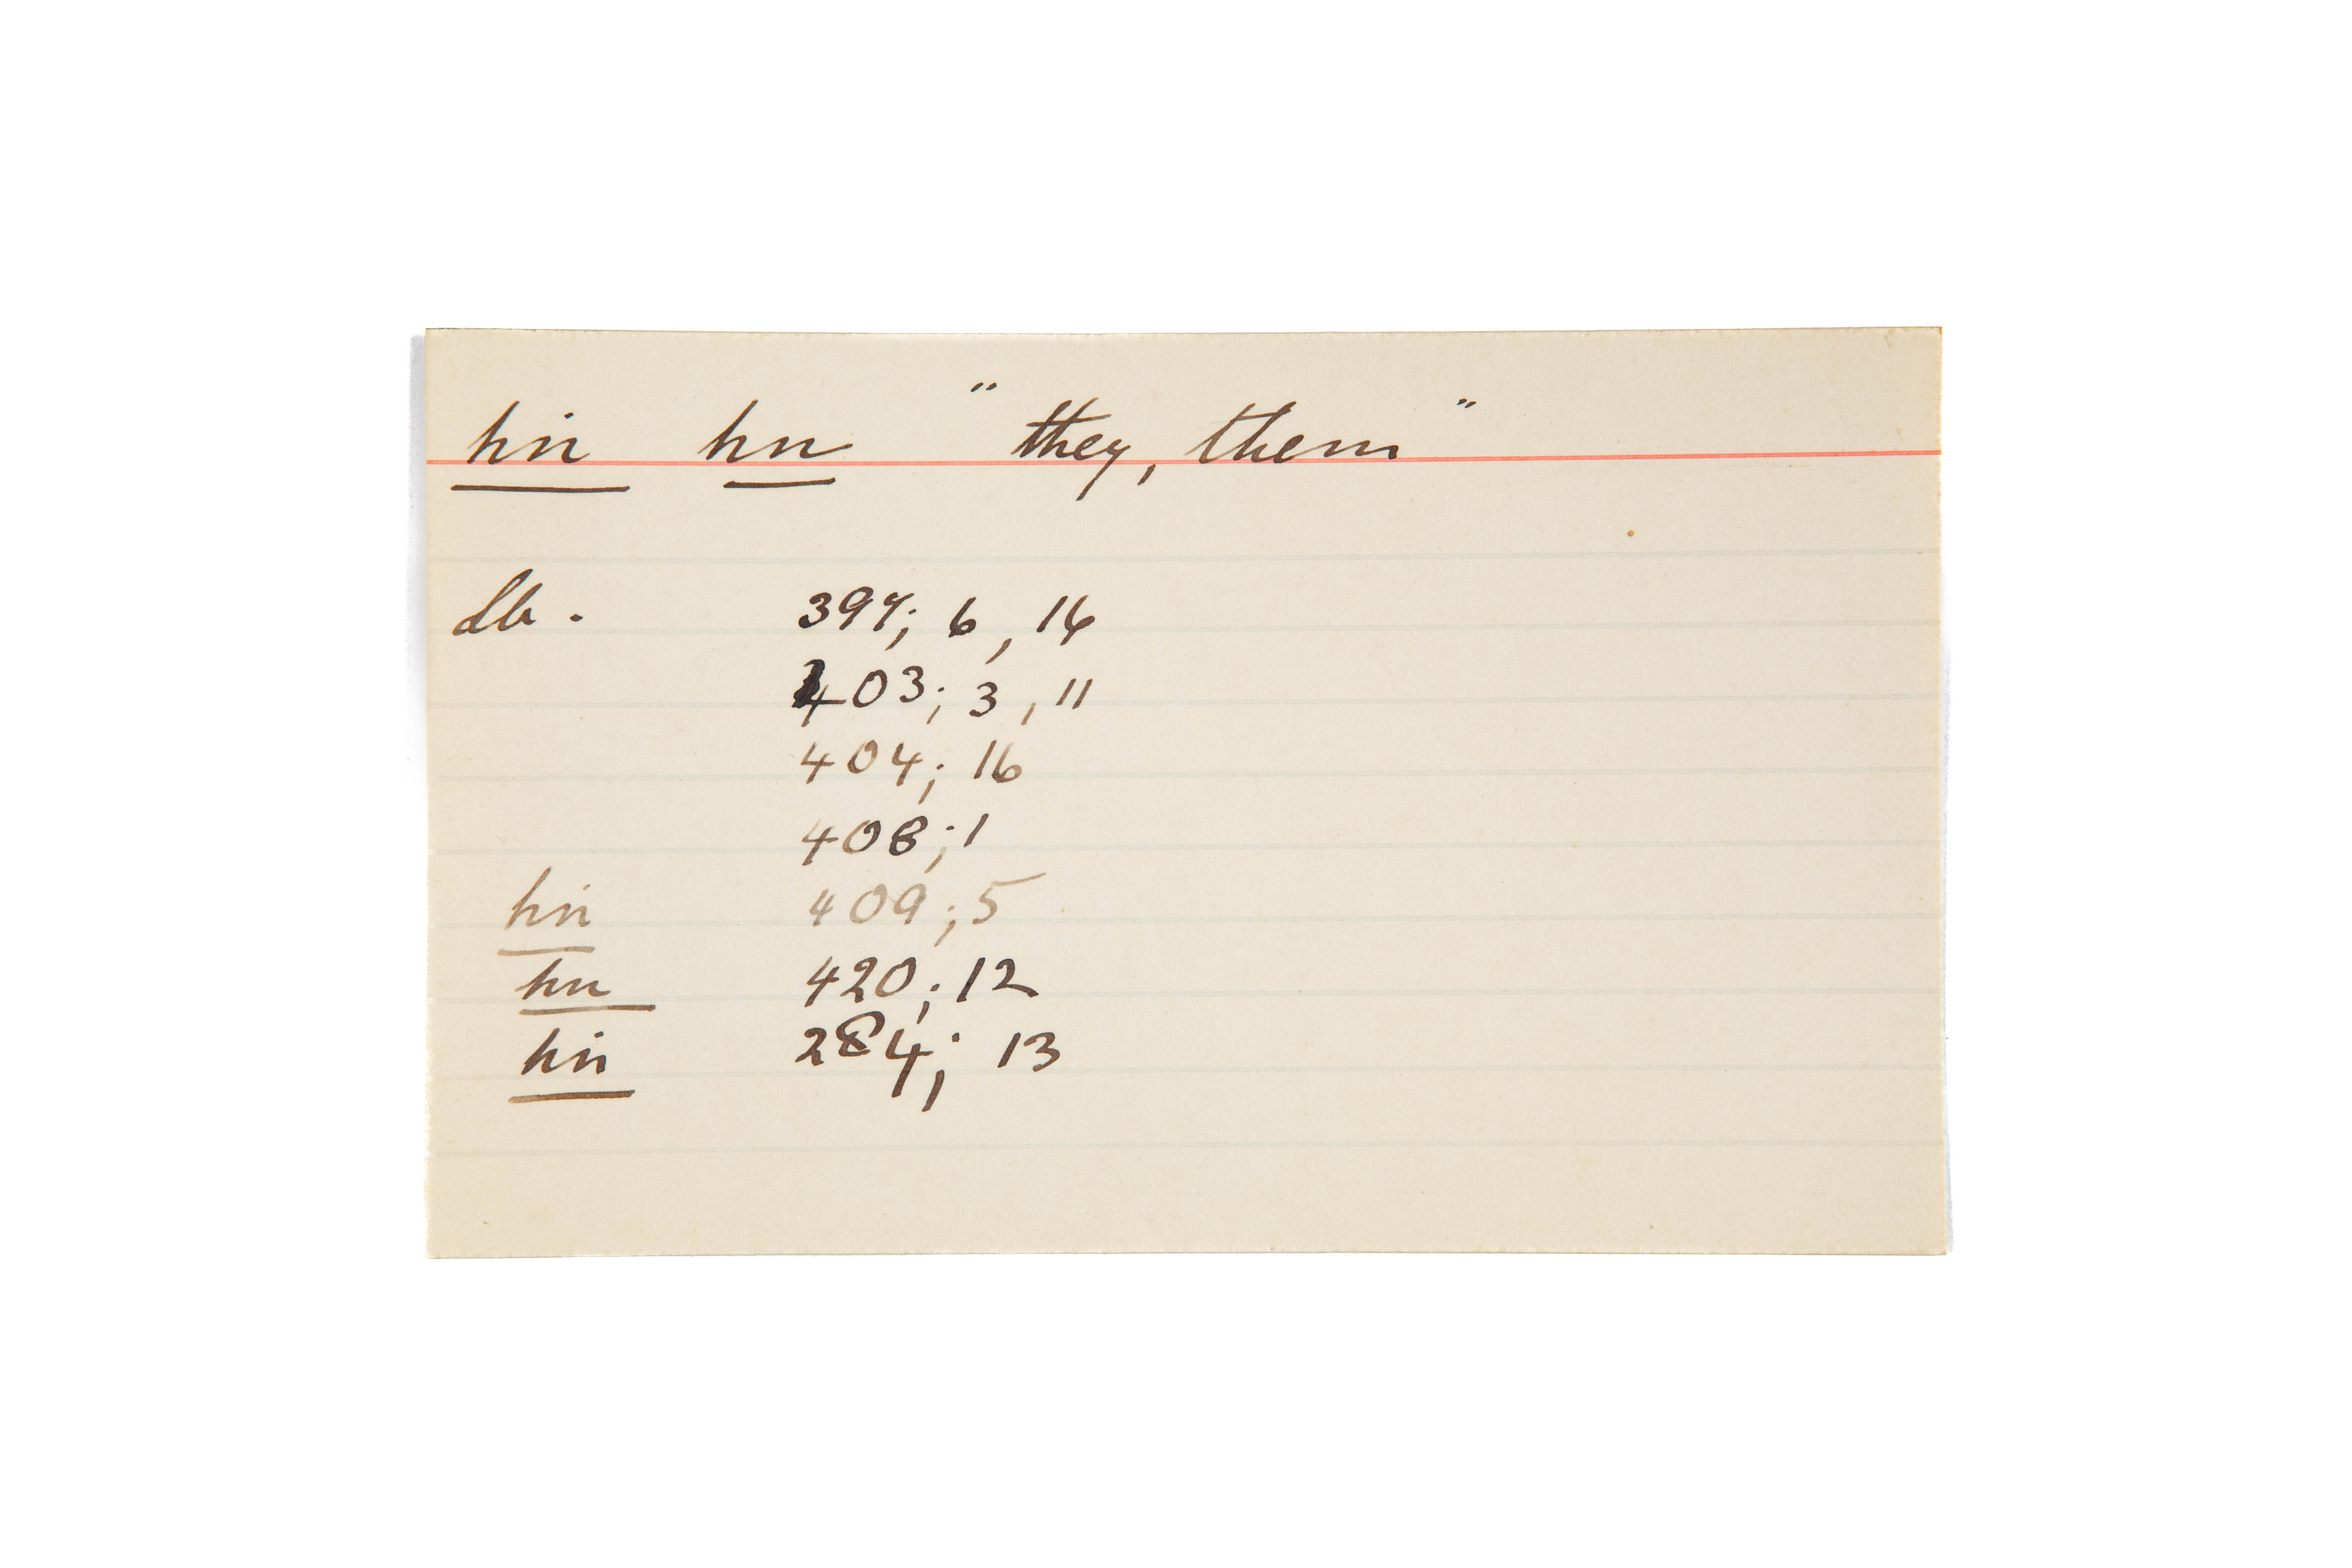 hin hn "they, them"
Lb. 397; 6, 16
403; 3, 11
404; 16
408; 1
hin 409; 5
hn 420; 12
hin 284; 13